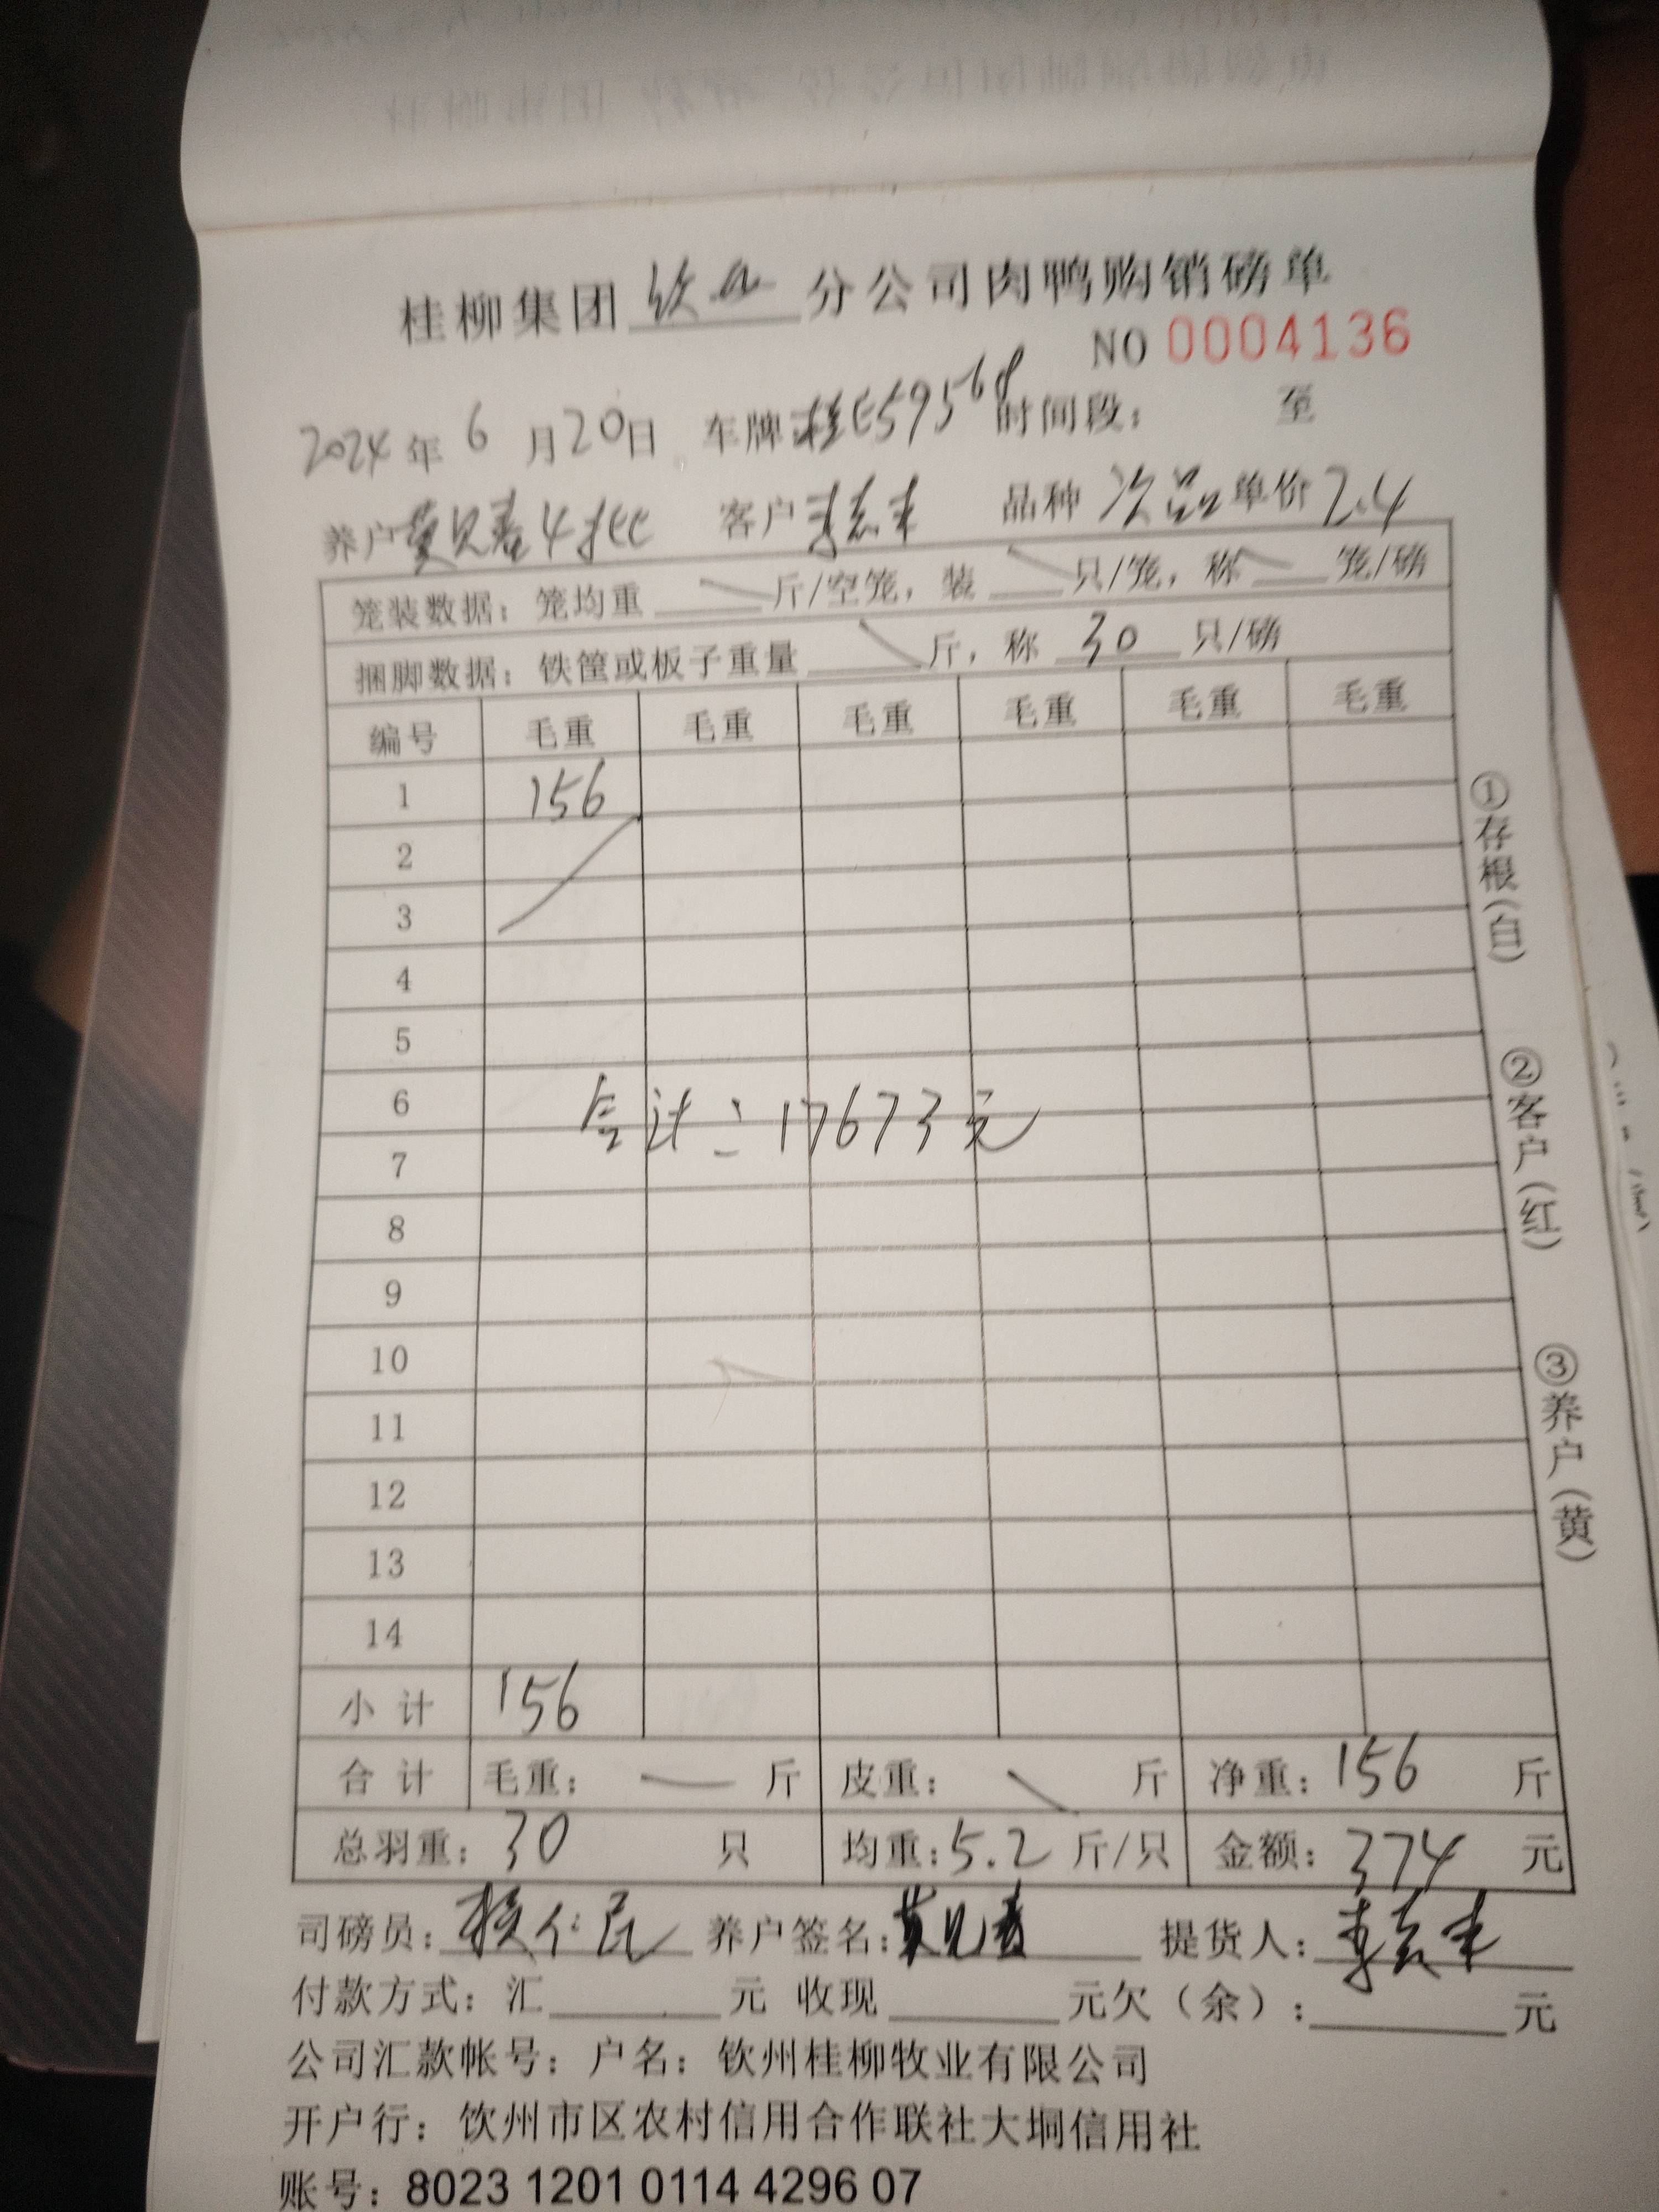 桂柳集团 钦州 分公司肉鸭购销磅单
NO 0004136
2024年 6 月 20日 车牌 桂E59568 时间段： 至
养户 4批 客户 品种 次品 单价 2.4
笼装数据：笼均重 斤/空笼，装 只/笼，称 笼/磅
捆脚数据：铁筐或板子重量 斤，称 30 只/磅
编号 毛重 毛重 毛重 毛重 毛重 毛重
1 156
2
3
4
5
6
合计：17673元
7
8
9
10
11
12
13
14
小计 156
合计 毛重： 斤 皮重： 斤 净重：156 斤
总羽重：30 只 均重：5.2 斤/只 金额：374 元
司磅员： 养户签名： 提货人：
付款方式：汇 元 收现 元欠（余）： 元
公司汇款帐号：户名：钦州桂柳牧业有限公司
开户行：钦州市区农村信用合作联社大垌信用社
账号：8023 1201 0114 4296 07
①存根(白)
②客户(红)
③养户(黄)